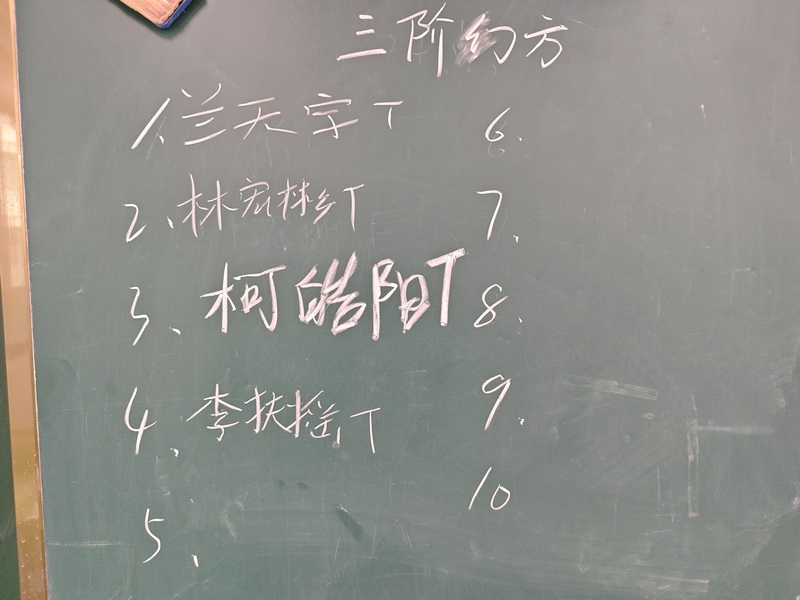 三阶幻方
1.兰天宇T
2、林宏彬T
3、柯皓阳T
4、李扶摇T
5、
6.
7、
8.
9.
10